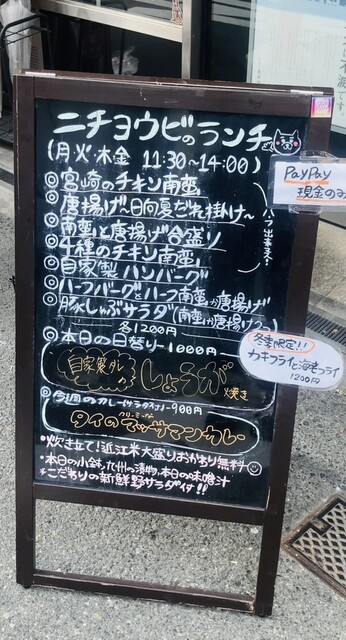 ニチヨウビのランチ
(月・火・木・金 11:30~14:00)
◎宮崎のチキン南蛮
◎唐揚げ~日向夏だれ掛け~
◎南蛮と唐揚げ合盛り
◎4種のチキン南蛮
◎自家製ハンバーグ
◎ハーフバーグとハーフ南蛮or唐揚げ
◎豚しゃぶサラダ(南蛮or唐揚げ
各1200円
◎本日の日替り-1000円
しょうが焼き
◎今週のカレー(サラダ付)-900円
クリーミーな
タイのマッサマンカレー
・炊き立て!近江米大盛りおかわり無料
・本日の小鉢、九州の漬物、本日の味噌汁
・こだわりの新鮮野サラダ付!!
PayPay
現金のみ
冬季限定!!
カキフライと海老フライ
1200円